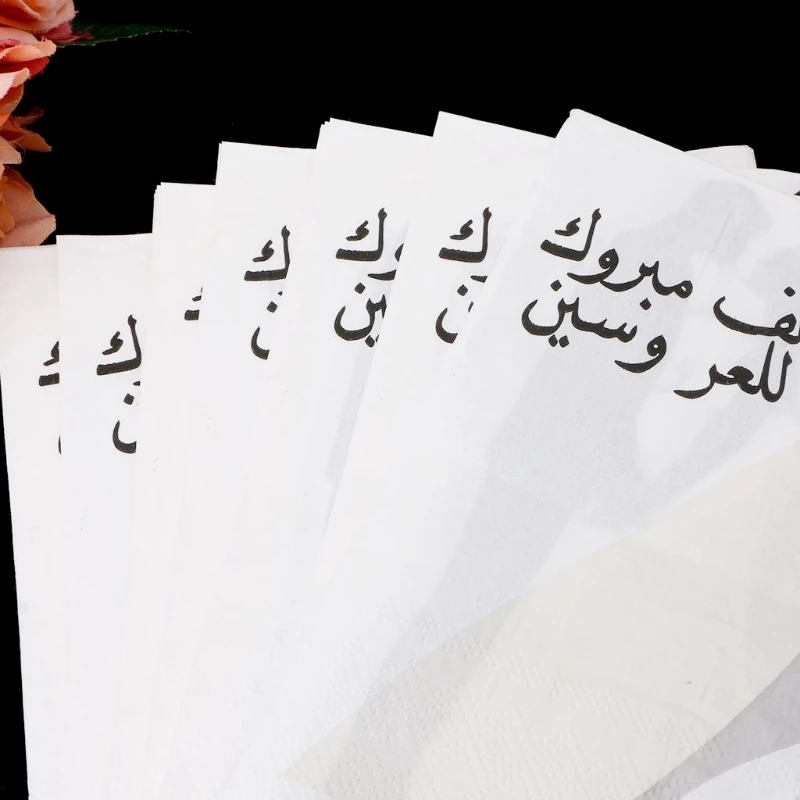 مبروك
للعروسين